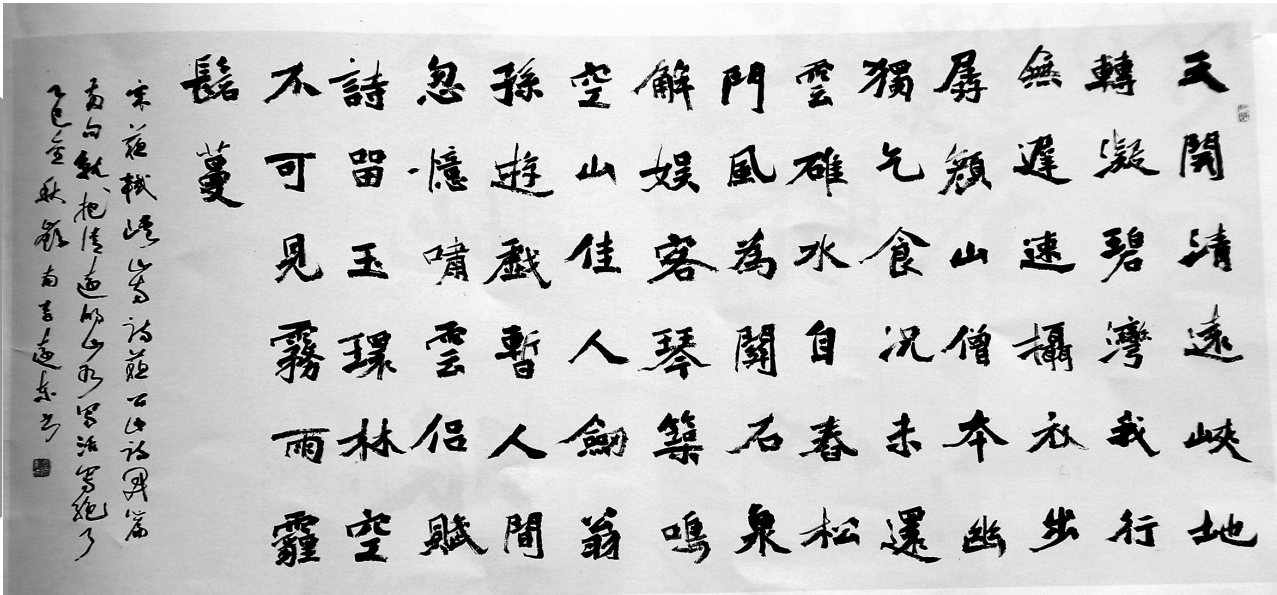 天開清遠峽地
轉凝碧灣我行
無遲速攝衣步
孱顏山僧本幽
獨乞食況未還
雲碓水自舂松
門風為關石泉
解娛客琴築鳴
空山佳人劍翁
孫遊戲暫人間
忽憶嘯雲侶賦
詩留玉環林空
不可見霧雨霾
髻蔓
宋蘇軾峽山寺詩蘇公此詩開篇
兩句就把清遠的山水寫活寫絕了
乙巳金秋嶺南李遠東書